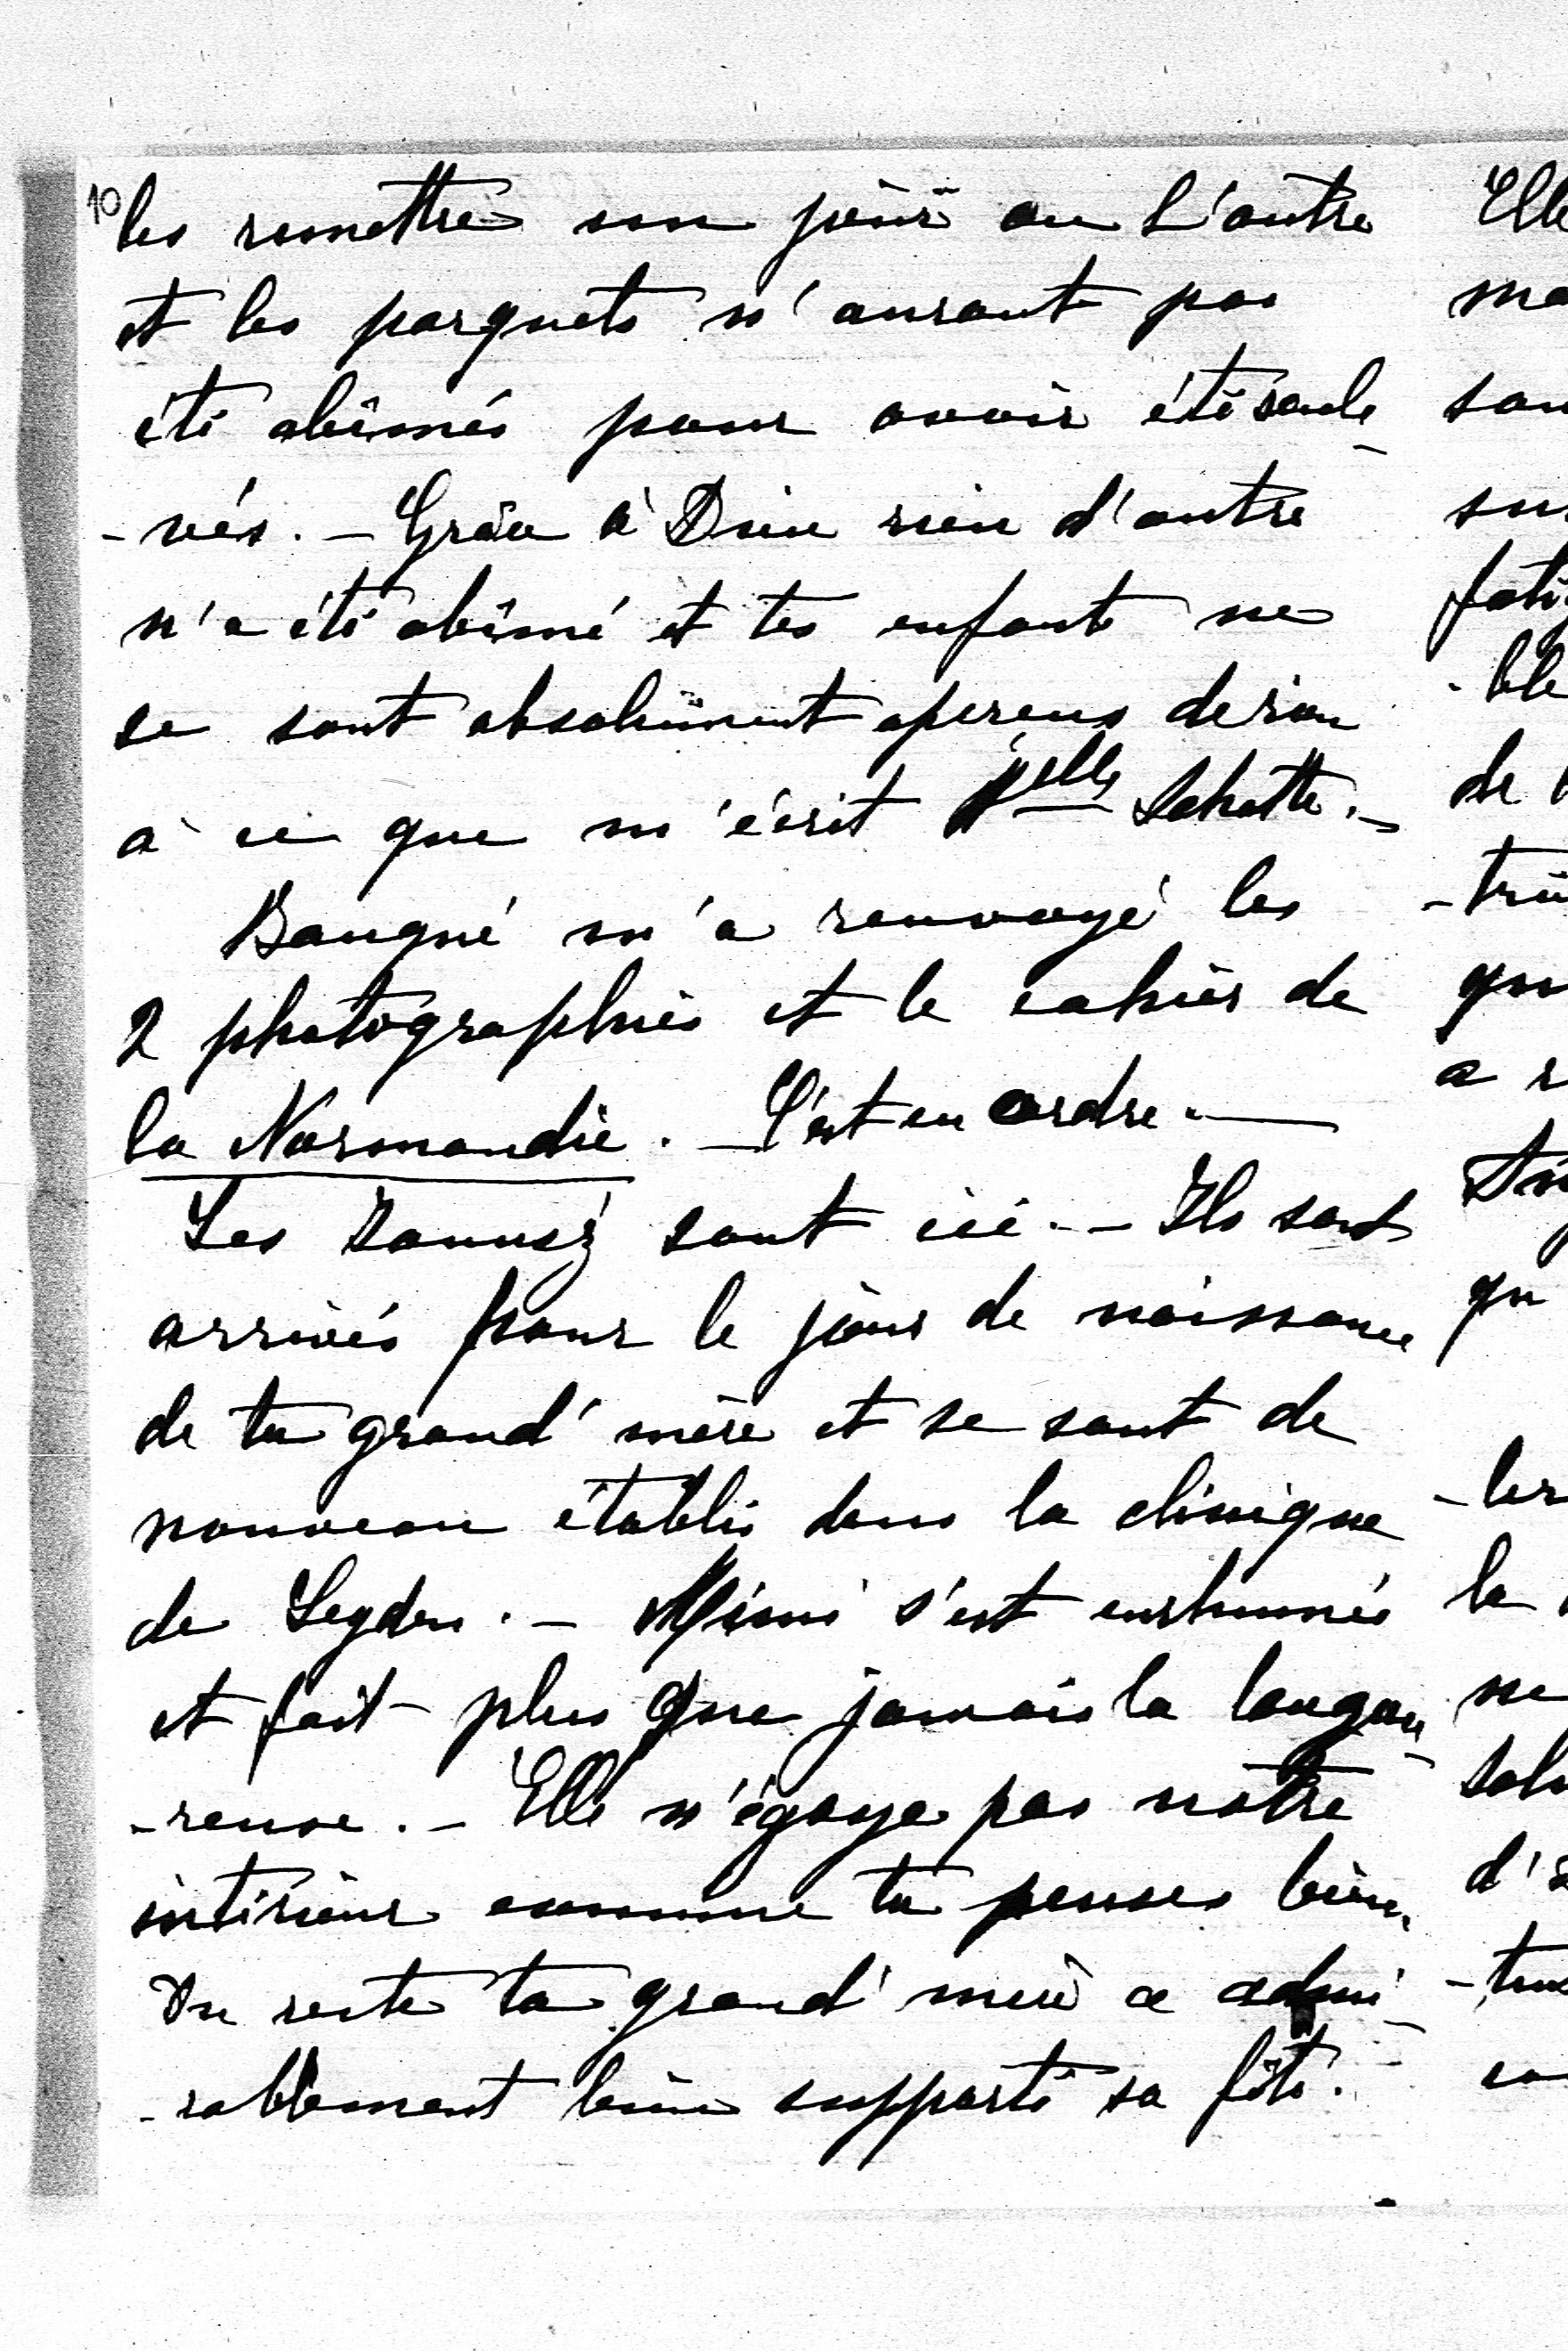 10
les remettre un jour ou l'autre
et les parquets n'auront pas
été abîmés pour avoir été soule-
-vés. - Grâce à Dieu rien d'autre
n'a été abîmé et tes enfants ne
se sont absolument aperçus de rien
à ce que m'écrit Melle Schotte. -
Baugné m'a renvoyé les
2 photographies et le cahier de
la Normandie. - C'est en ordre. -
Les Janusz sont ici. - Ils sont
arrivés pour le jour de naissance
de ta grand'mère et se sont de
nouveau établis dans la clinique
de Leyden. - Mimi s'est enrhumée
et fait plus que jamais la langou-
-reuse. - Elle n'égaye pas notre
intérieur comme tu penses bien.
Du reste ta grand'mère a admi-
-rablement bien supporté sa fête.
Elle
ma
sou
su
fati
-ble
de
-tri
qu
a r
qu
-ler
la
ne
d'